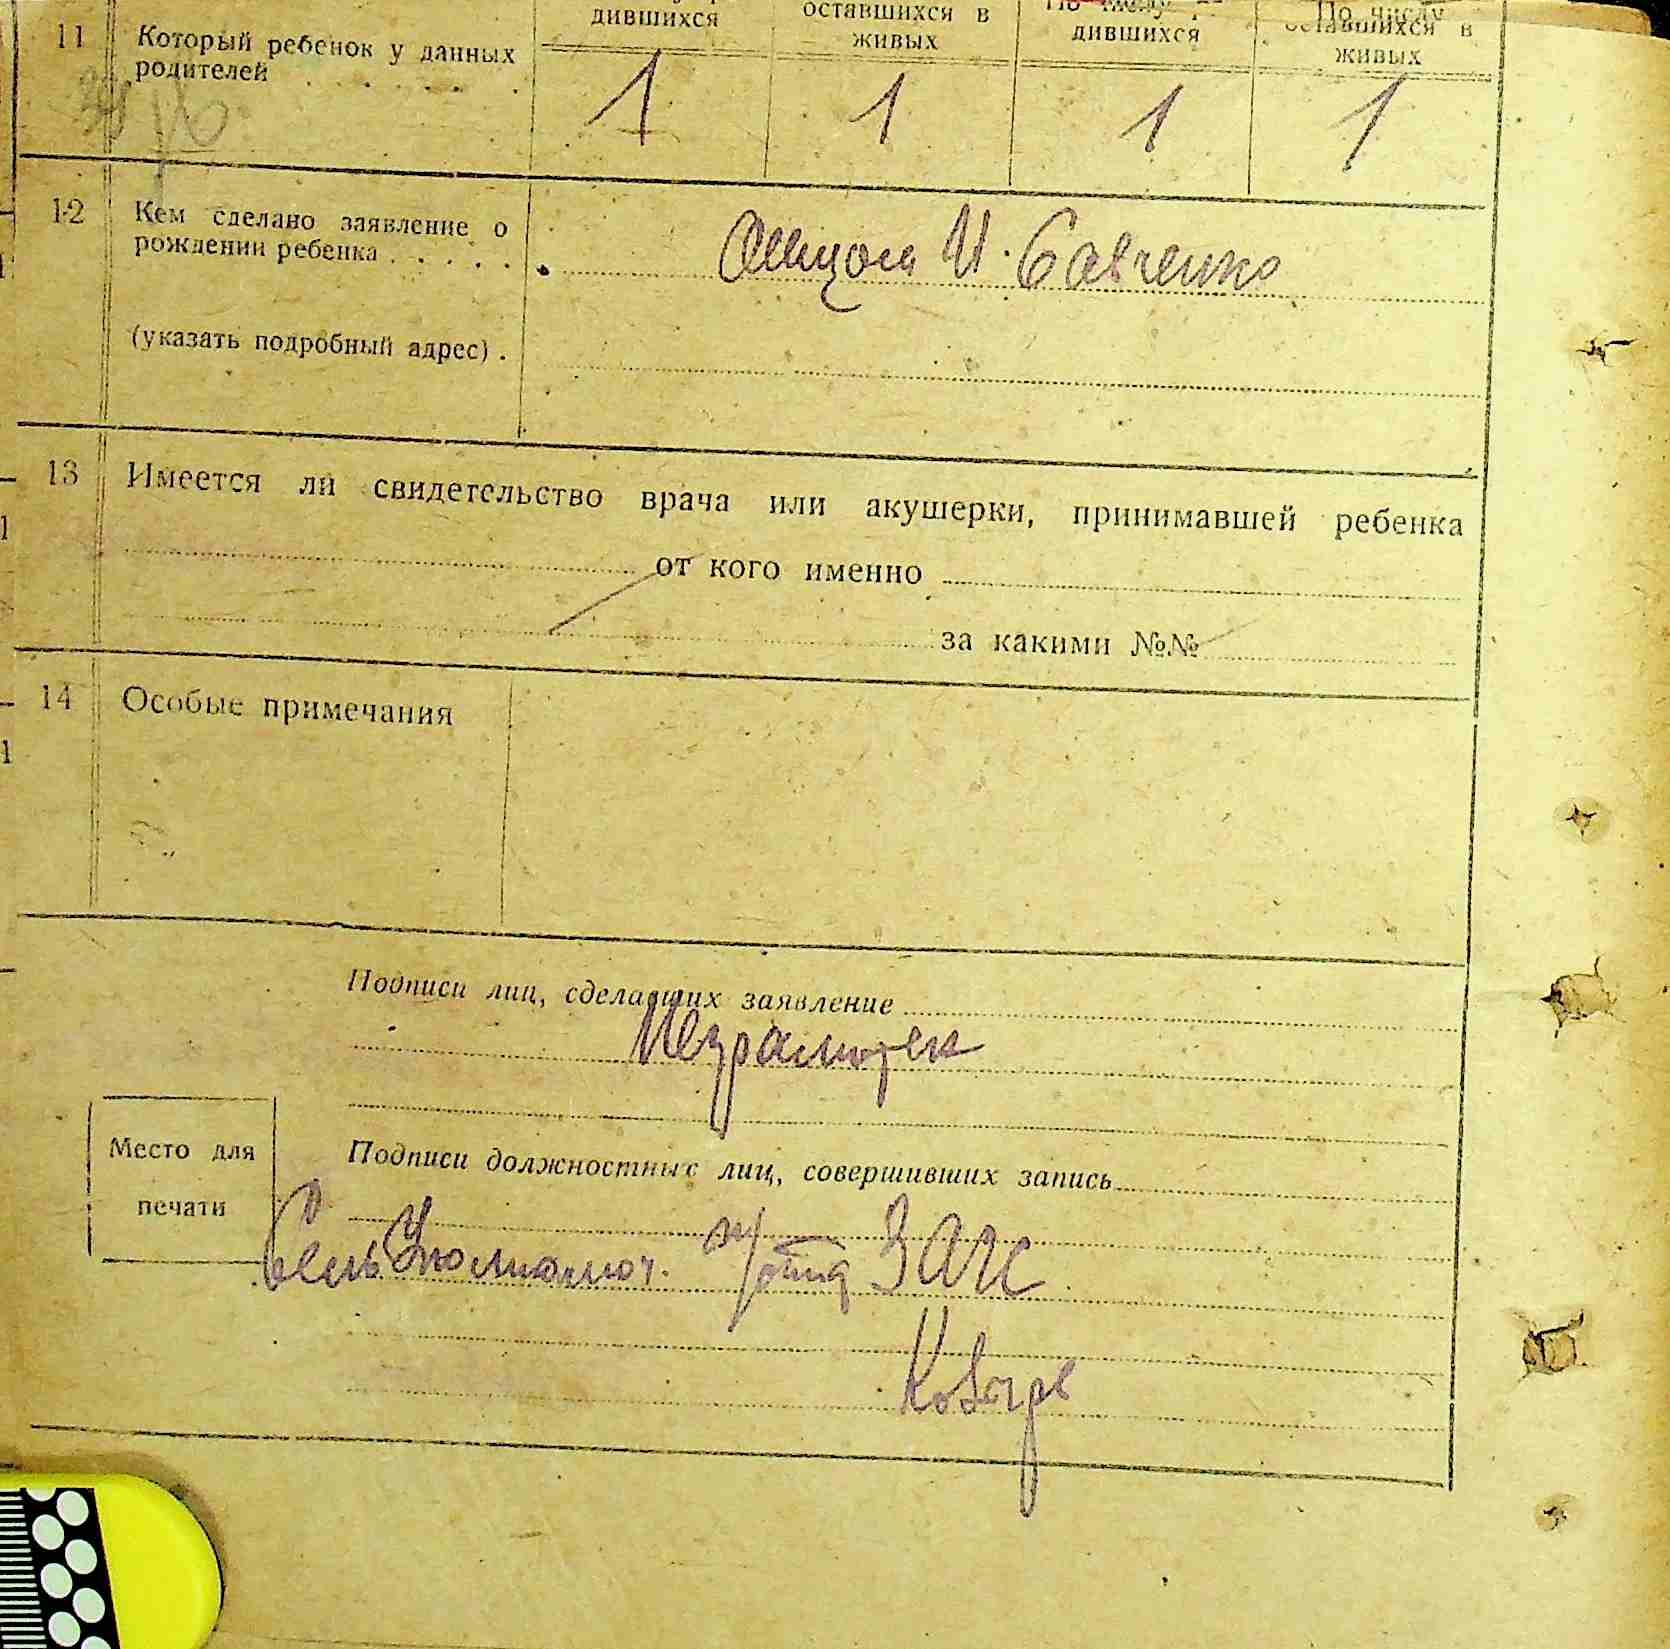 дившихся
оставшихся в
живых
По числу
дившихся
По числу
оставшихся в
живых
11 Который ребенок у данных
родителей . . . . . . .
1 1 1 1
12 Кем сделано заявление о
рождении ребенка . . . . .
Отцом И. Савченко
(указать подробный адрес) .
13 Имеется ли свидетельство врача или акушерки, принимавшей ребенка
от кого именно
за какими №№
14 Особые примечания
Подписи лиц, сделавших заявление
Неграмотен
Место для
печати
Подписи должностных лиц, совершивших запись
ЗАГС